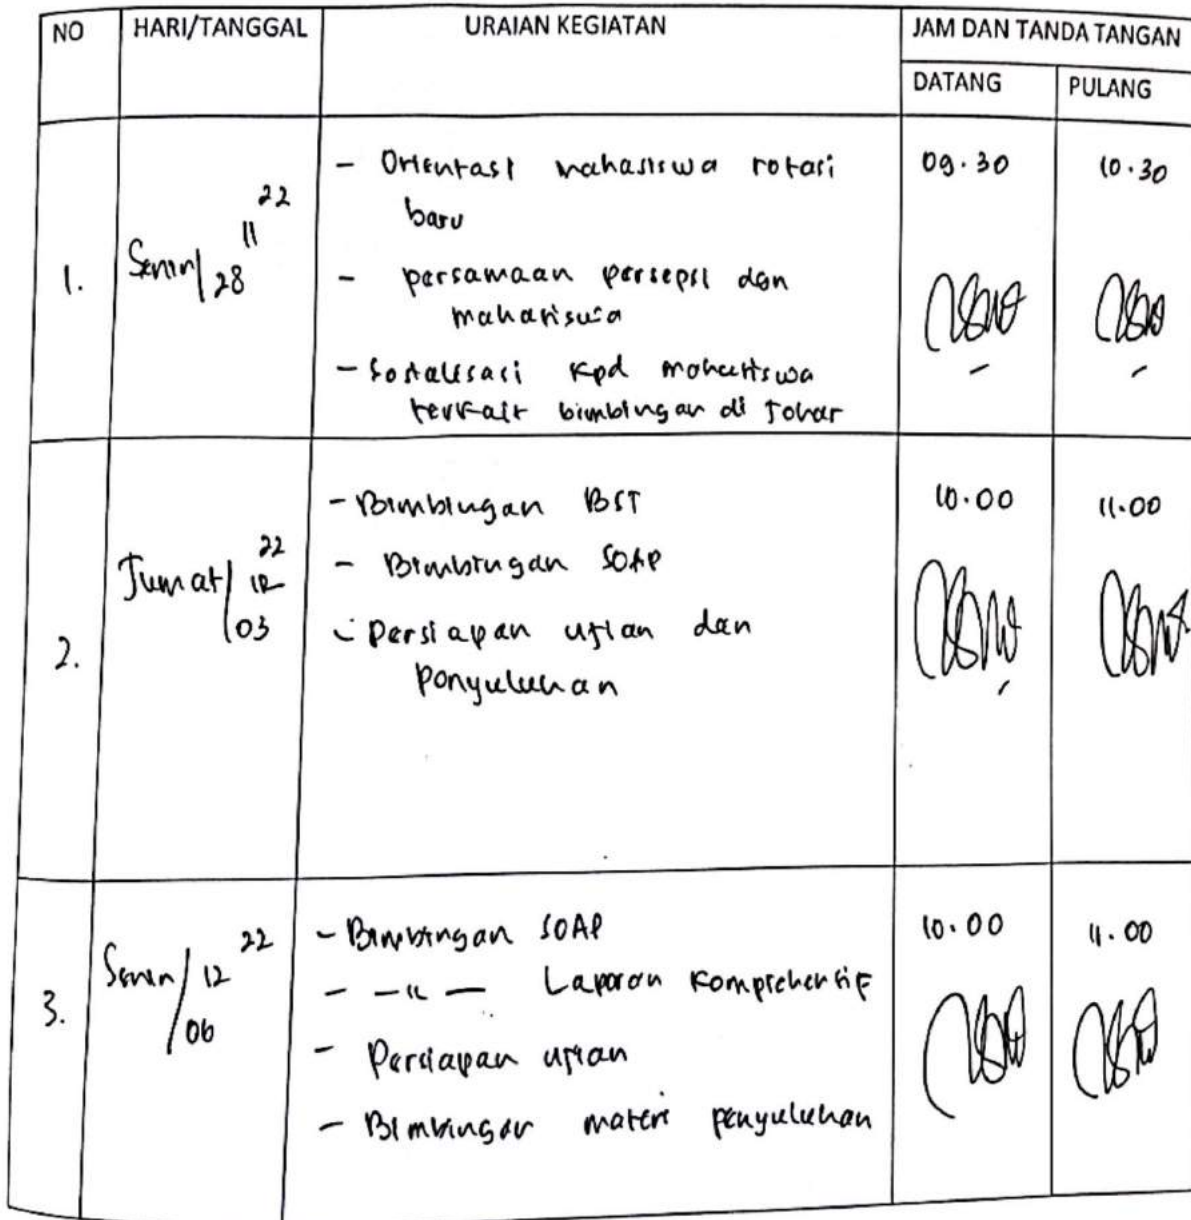 NO HARI/TANGGAL URAIAN KEGIATAN JAM DAN TANDA TANGAN
DATANG PULANG
1. Senin/ 28 11 22
- Orientasi mahasiswa rotasi
baru
- persamaan persepsi dgn
mahasiswa
- Sosialisasi kpd mahasiswa
terkait bimbingan di Johar
09.30 10.30
2. Jumat/ 03 12 22
- Bimbingan BST
- Bimbingan SOAP
- Persiapan ujian dan
penyuluhan
10.00 11.00
3. Senin/ 06 12 22
- Bimbingan SOAP
- -"- Laporan Komprehensif
- Persiapan ujian
- Bimbingan materi penyuluhan
10.00 11.00